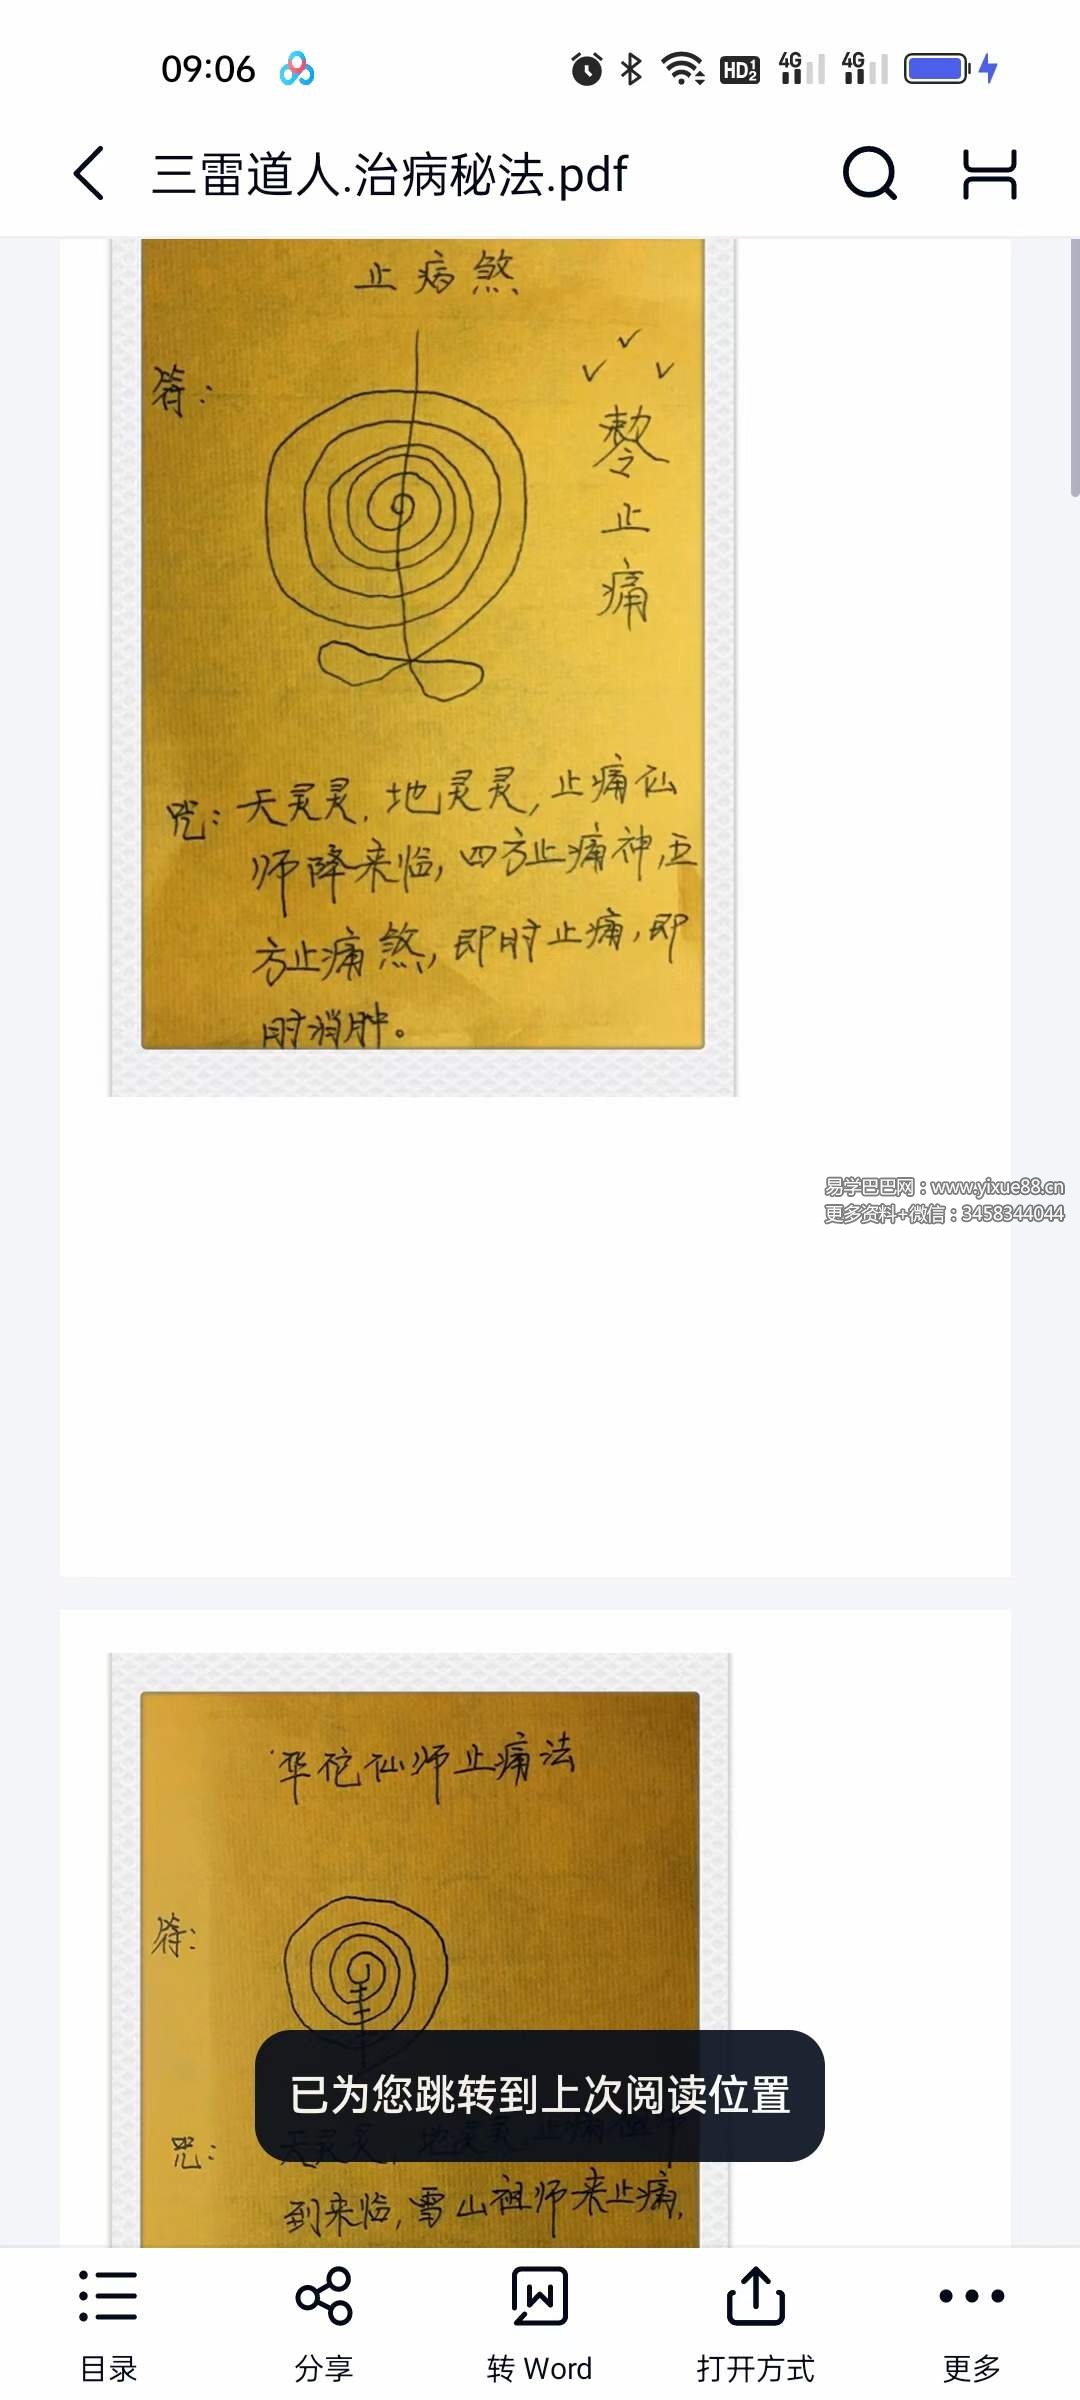 09:06
HD 1 2 4G 4G
三雷道人.治病秘法.pdf
止病煞
符：
敕令止痛
咒：天灵灵，地灵灵，止痛仙
师降来临，四方止痛神，五
方止痛煞，即时止痛，即
时消肿。
易学巴巴网：www.yixue88.cn
更多资料+微信：3458344044
华佗仙师止痛法
符：
已为您跳转到上次阅读位置
咒：天灵灵，地灵灵，止痛
到来临，雪山祖师来止痛，
目录
分享
转 Word
打开方式
更多